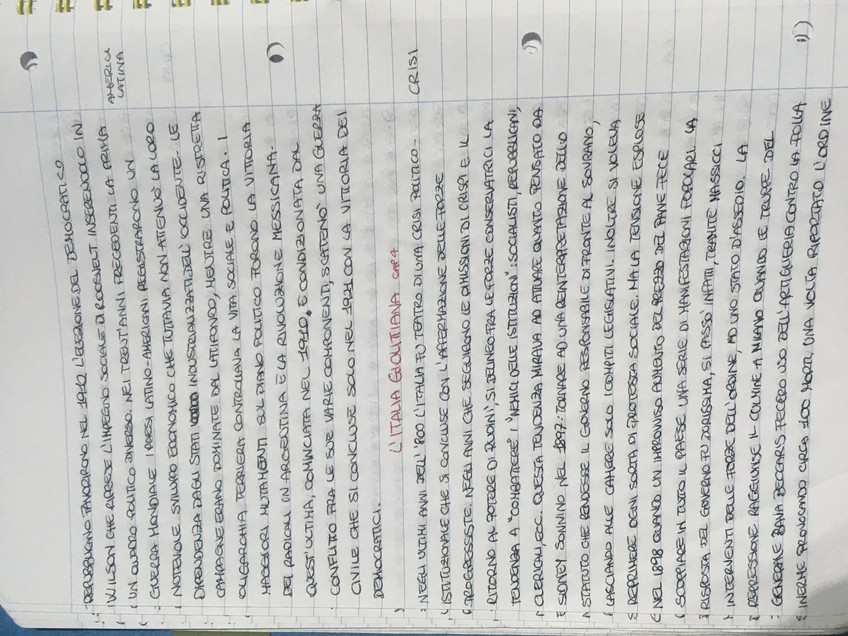 REPUBBLICANO FAVORIRONO NEL 1912 L'ELEZIONE DEL DEMOCRATICO
WILSON CHE RIPRESE L'IMPEGNO SOCIALE DI ROOSEVELT INSERENDOLO IN
UN QUADRO POLITICO DIVERSO. NEI TRENT'ANNI PRECEDENTI LA PRIMA
AMERICA
LATINA
GUERRA MONDIALE I PAESI LATINO-AMERICANI REGISTRARONO UN
NOTEVOLE SVILUPPO ECONOMICO CHE TUTTAVIA NON ATTENUÒ LA LORO
DIPENDENZA DAGLI STATI INDUSTRIALIZZATI DELL'OCCIDENTE. LE
CAMPAGNE ERANO DOMINATE DAL LATIFONDO, MENTRE UNA RISTRETTA
OLIGARCHIA TERRIERA CONTROLLAVA LA VITA SOCIALE E POLITICA. I
MAGGIORI MUTAMENTI SUL PIANO POLITICO FURONO LA VITTORIA
DEI RADICALI IN ARGENTINA E LA RIVOLUZIONE MESSICANA.
QUEST'ULTIMA, COMINCIATA NEL 1910, E CONDIZIONATA DAL
CONFLITTO FRA LE SUE VARIE COMPONENTI, SCATENÒ UNA GUERRA
CIVILE CHE SI CONCLUSE SOLO NEL 1921 CON LA VITTORIA DEI
DEMOCRATICI.
L'ITALIA GIOLITTIANA CAP4
NEGLI ULTIMI ANNI DELL'800 L'ITALIA FU TEATRO DI UNA CRISI POLITICO-
CRISI
ISTITUZIONALE CHE SI CONCLUSE CON L'AFFERMAZIONE DELLE FORZE
PROGRESSISTE. NEGLI ANNI CHE SEGUIRONO LE DIMISSIONI DI CRISPI E IL
RITORNO AL POTERE DI RUDINÌ, SI DELINEÒ FRA LE FORZE CONSERVATRICI LA
TENDENZA A "COMBATTERE" I "NEMICI DELLE ISTITUZIONI": SOCIALISTI, REPUBBLICANI,
CLERICALI, ECC. QUESTA TENDENZA MIRAVA AD ATTUARE QUANTO PENSATO DA
SIDNEY SONNINO NEL 1897: TORNARE AD UNA REINTERPRETAZIONE DELLO
STATUTO CHE RENDESSE IL GOVERNO RESPONSABILE DI FRONTE AL SOVRANO,
LASCIANDO ALLE CAMERE SOLO I COMPITI LEGISLATIVI. INOLTRE SI VOLEVA
REPRIMERE OGNI SORTA DI PROTESTA SOCIALE. MA LA TENSIONE ESPLOSE
NEL 1898 QUANDO UN IMPROVVISO AUMENTO DEL PREZZO DEL PANE FECE
SCOPPIARE IN TUTTO IL PAESE UNA SERIE DI MANIFESTAZIONI POPOLARI. LA
RISPOSTA DEL GOVERNO FU DURISSIMA, SI PASSÒ INFATTI, TRAMITE MASSICCI
INTERVENTI DELLE FORZE DELL'ORDINE, AD UNO STATO D'ASSEDIO. LA
REPRESSIONE RAGGIUNSE IL CULMINE A MILANO QUANDO LE TRUPPE DEL
GENERALE BAVA BECCARIS FECERO USO DELL'ARTIGLIERIA CONTRO LA FOLLA
INERME PROVOCANDO CIRCA 100 MORTI. UNA VOLTA RIPORTATO L'ORDINE